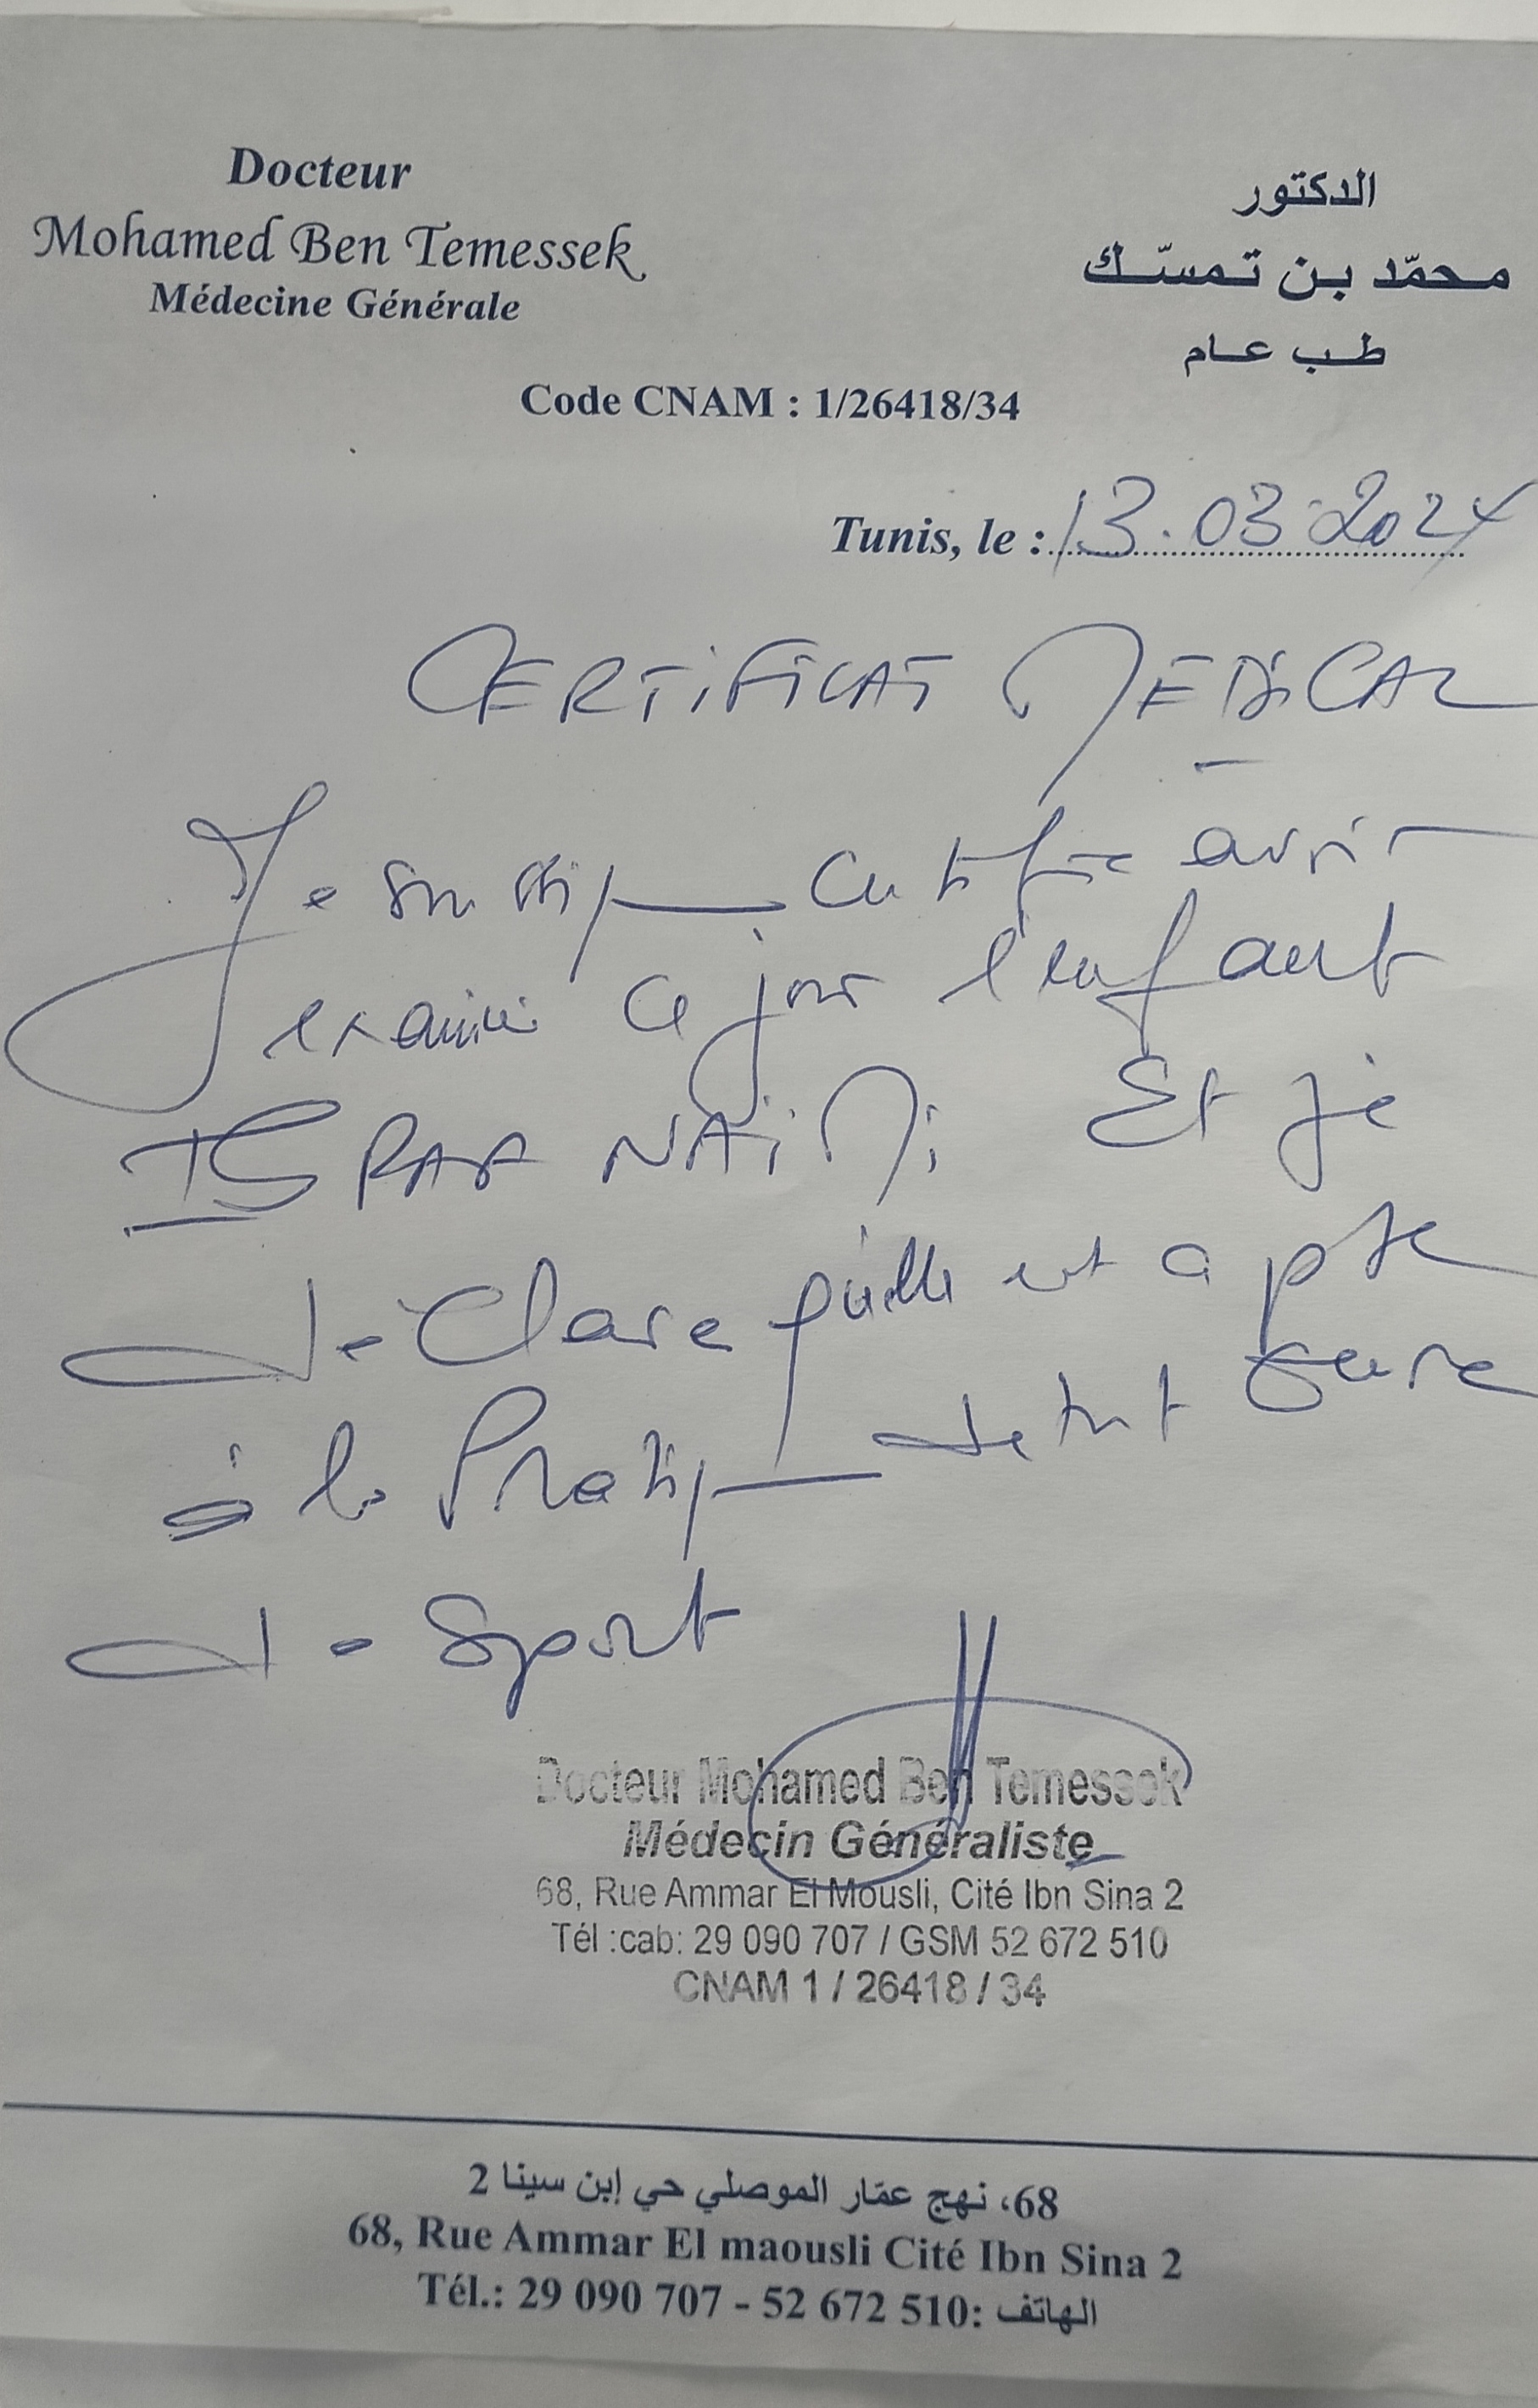 Docteur
Mohamed Ben Temessek
Médecine Générale
الدكتور
محمّد بن تمسّك
طب عام
Code CNAM : 1/26418/34
Tunis, le : 13.03.2024
CERTIFICAT MEDICAL
Je soussigné certifie avoir
examiné ce jour l'enfant
ISRAA NAIMI Et je
déclare qu'elle est apte
à la Pratique de tout genre
de Sport
Docteur Mohamed Ben Temessek
Médecin Généraliste
68, Rue Ammar El Mousli, Cité Ibn Sina 2
Tél :cab: 29 090 707 / GSM 52 672 510
CNAM 1 / 26418 / 34
68، نهج عمّار الموصلي حي إبن سينا 2
68, Rue Ammar El maousli Cité Ibn Sina 2
Tél.: 29 090 707 - 52 672 510: الهاتف